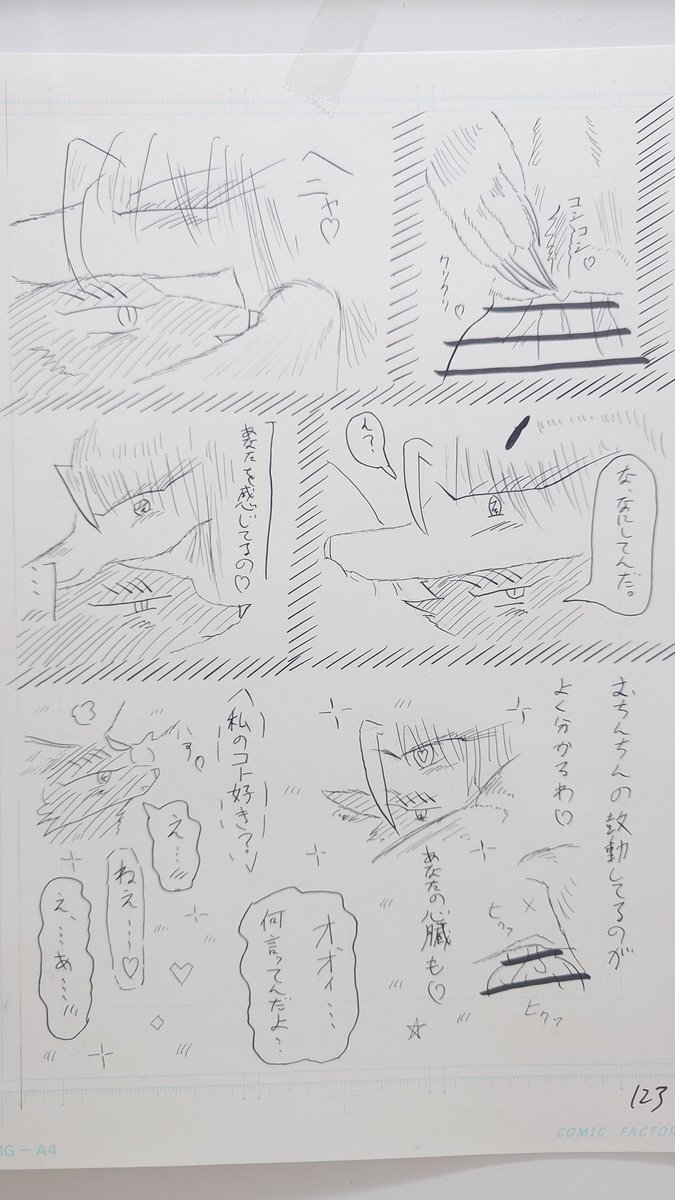 コシコシ♡
クリクリ♡
ヘニャ♡
な、なにしてんだ。
ん?
あなたを感じてるの♡
…
むちんちんの鼓動してるのが
よく分かるわ♡
ヒクッ
ヒクッ
あなたの心臓も♡
オオィ……
何言ってんだよ…
私のコト好き?
え…
ねえ……♡
え、……あ……
123
COMIC FACTOR
MG-A4